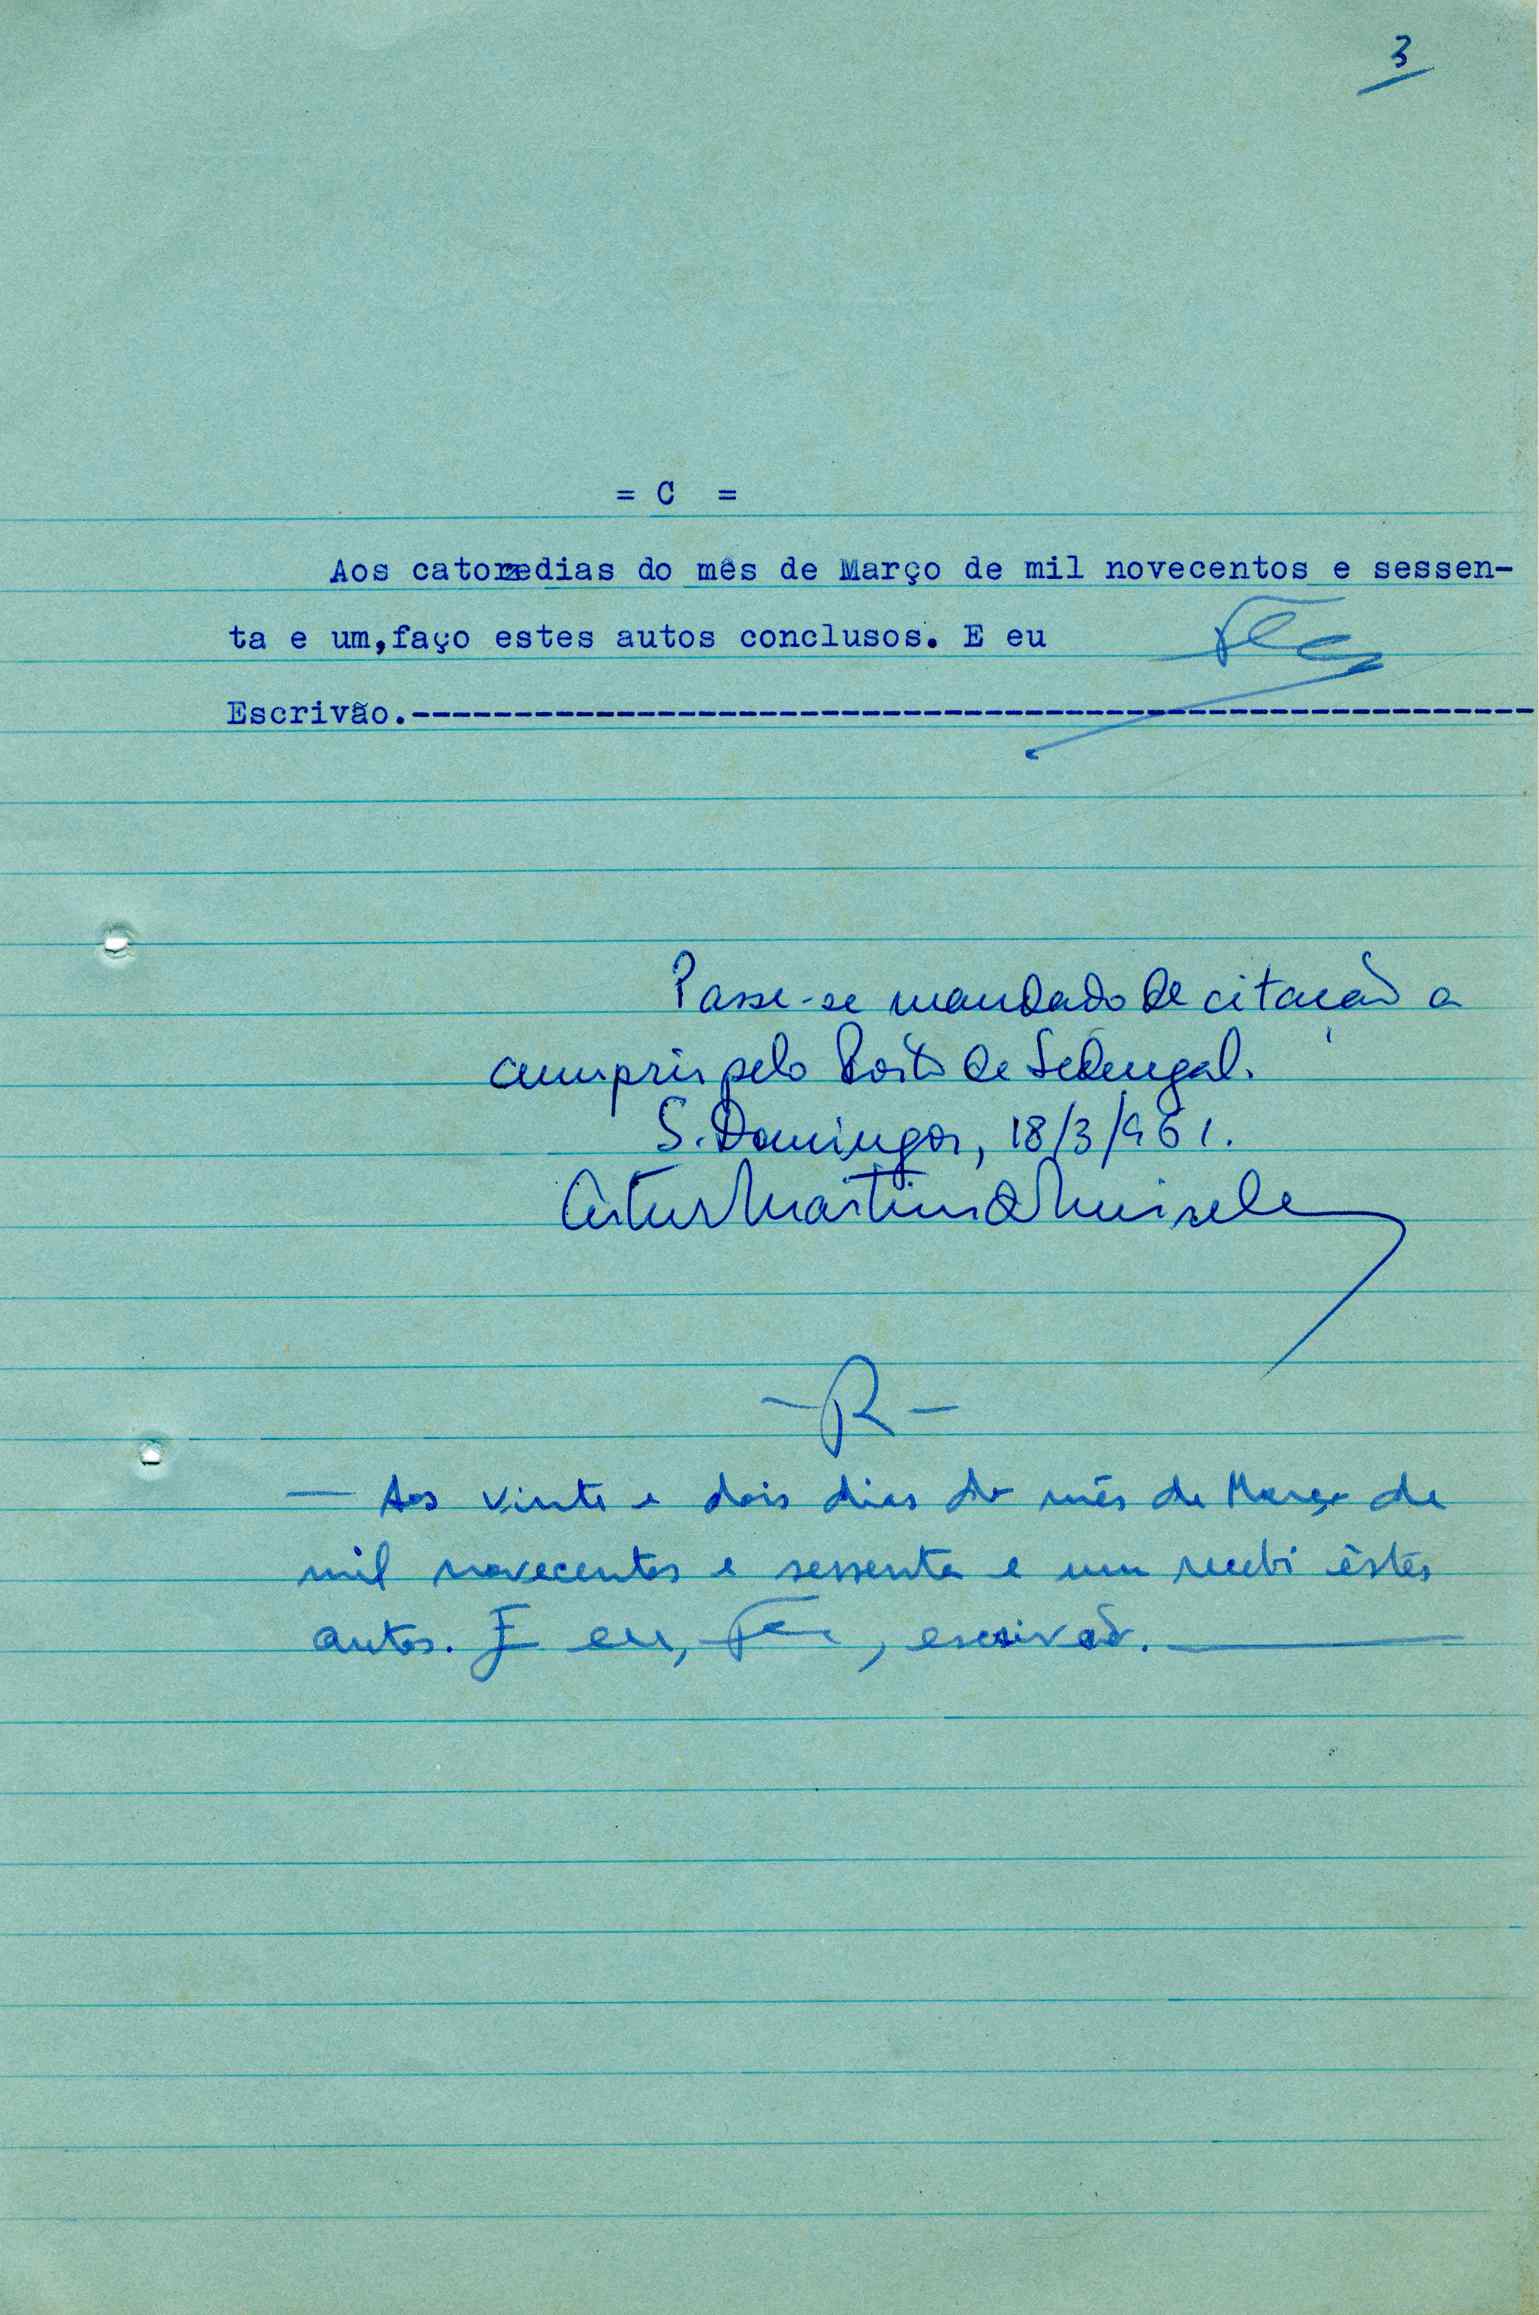 3
= C =
Aos catorzedias do mês de Março de mil novecentos e sessen-
ta e um,faço estes autos conclusos. E eu
Escrivão.-----------------------------------------------------
Passe-se mandado de citação a
cumprir pelo Posto de Sedengal.
S. Domingos, 18/3/961.
Artur Martins de
- R -
— Aos vinte e dois dias do mês de Março de
mil novecentos e sessenta e um recebi êstes
autos. E eu, , escrivão. —